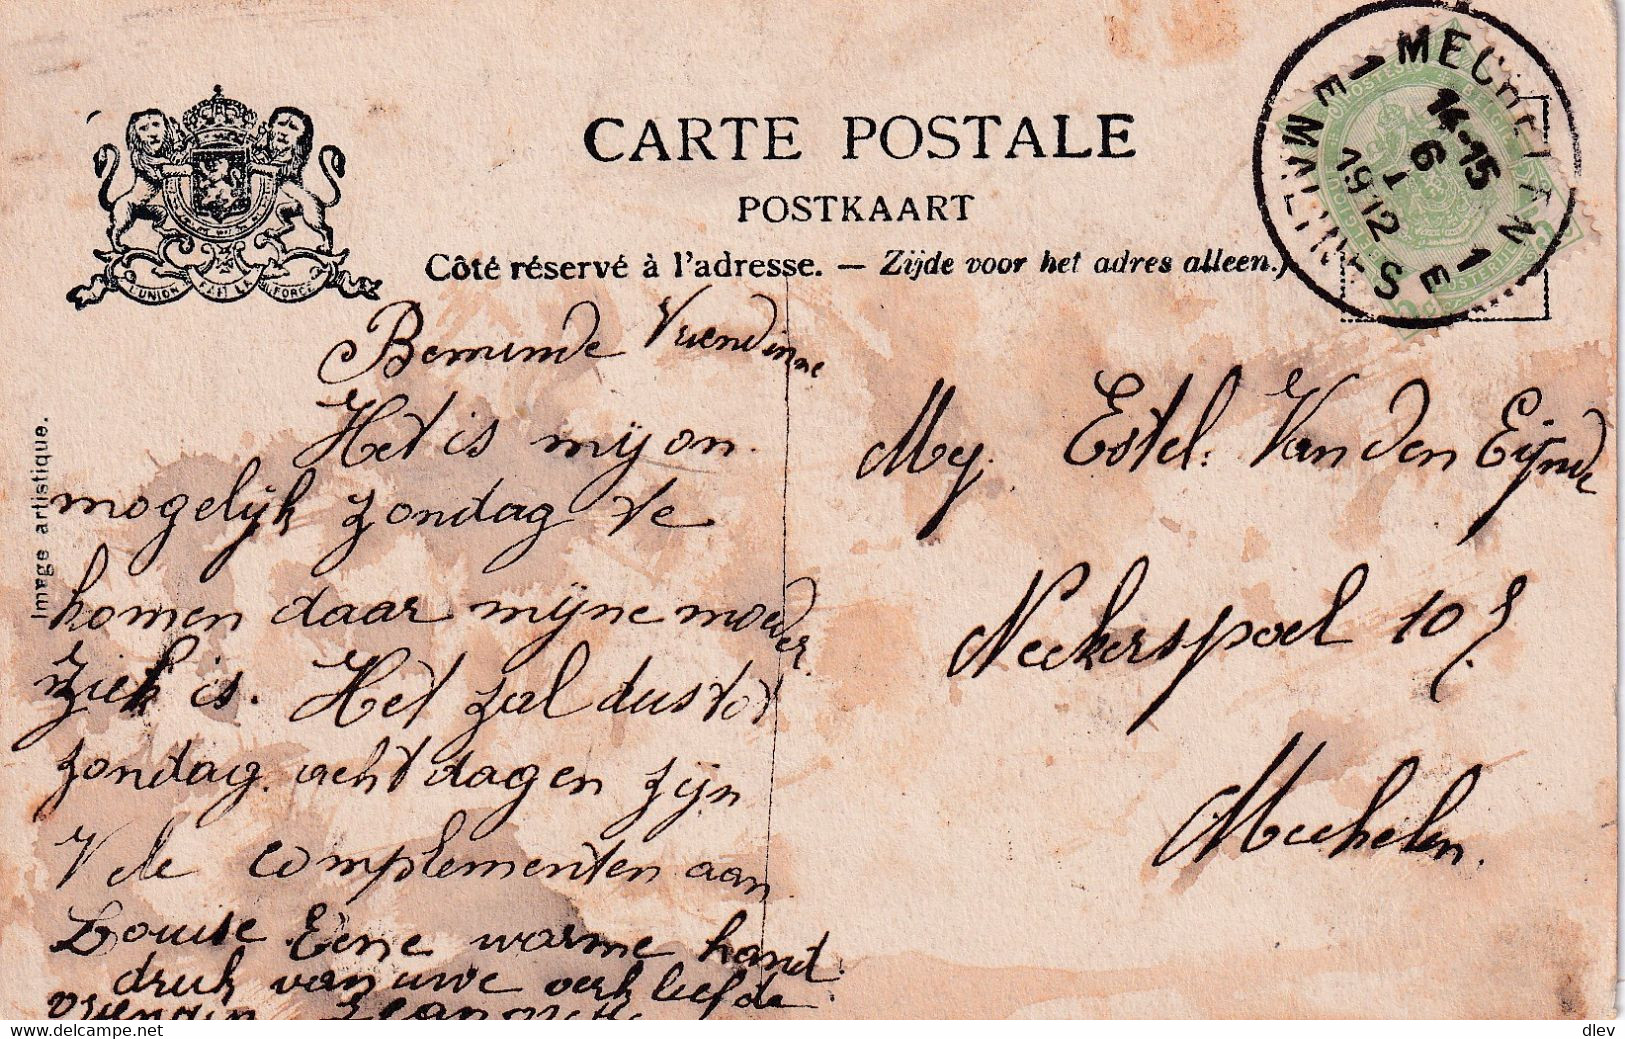 CARTE POSTALE
POSTKAART
Côté réservé à l'adresse. — Zijde voor het adres alleen.)
L'UNION FAIT LA FORCE
Image artistique.
MECHELEN
1E 1E
14-15
6 I
1912
MALINES
Beminde Vriendinne
Het is mij on
mogelijk zondag te
komen daar mijne moeder
ziek is. Het zal dus tot
zondag acht dagen zijn
Vele complementen aan
Louise Eene warme hand
druk van uwe verkliefde
vriendin
Mej. Estel: Van den Eijnde
Neckerspoel 107
Mechelen.
delcampe.net
dlev